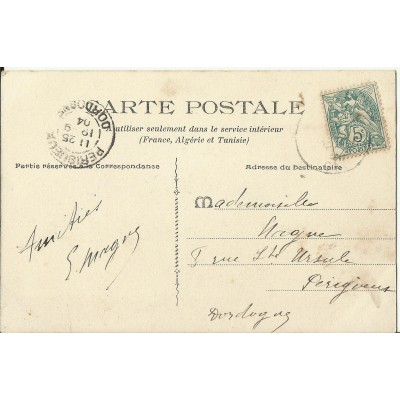 CARTE POSTALE
utiliser seulement dans le service intérieur
(France, Algérie et Tunisie)
Partie réservée Correspondance
Adresse du Destinataire
PERIGUEUX
DORDOGNE
11 25
9
04
5
Mademoiselle
rue Ste Ursule
Périgueux
Dordogne
Amitiés